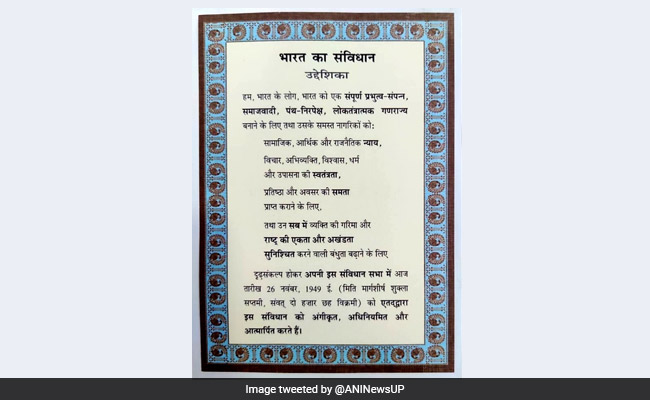 भारत का संविधान
उद्देशिका
हम, भारत के लोग, भारत को एक संपूर्ण प्रभुत्व-संपन्न,
समाजवादी, पंथ-निरपेक्ष, लोकतंत्रात्मक गणराज्य
बनाने के लिए तथा उसके समस्त नागरिकों को:
सामाजिक, आर्थिक और राजनैतिक न्याय,
विचार, अभिव्यक्ति, विश्वास, धर्म
और उपासना की स्वतंत्रता,
प्रतिष्ठा और अवसर की समता
प्राप्त कराने के लिए,
तथा उन सब में व्यक्ति की गरिमा और
राष्ट्र की एकता और अखंडता
सुनिश्चित करने वाली बंधुता बढ़ाने के लिए
दृढ़संकल्प होकर अपनी इस संविधान सभा में आज
तारीख 26 नवंबर, 1949 ई. (मिति मार्गशीर्ष शुक्ला
सप्तमी, संवत् दो हजार छह विक्रमी) को एतद्द्वारा
इस संविधान को अंगीकृत, अधिनियमित और
आत्मार्पित करते हैं।
Image tweeted by @ANINewsUP